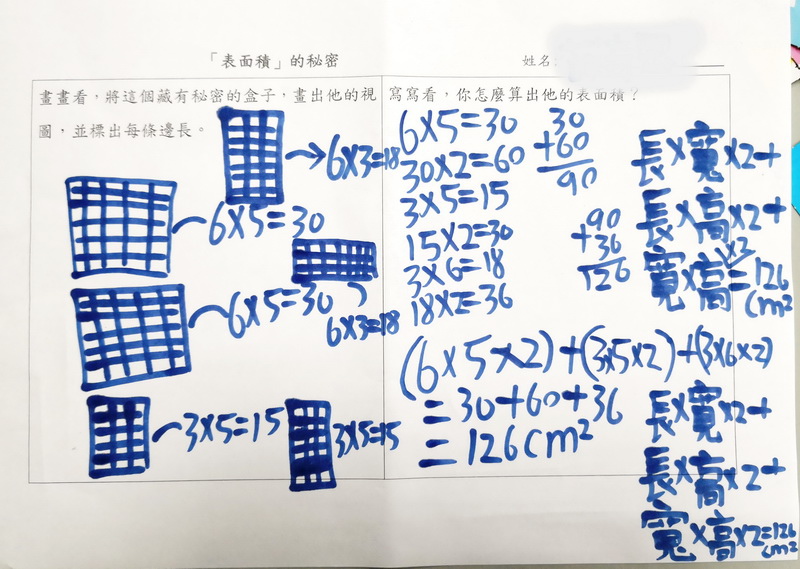 「表面積」的秘密
姓名:
畫畫看，將這個藏有秘密的盒子，畫出他的視
圖，並標出每條邊長。
6×3=18
6×5=30
6×5=30
6×3=18
3×5=15
3×5=15
寫寫看，你怎麼算出他的表面積？
6×5=30
30×2=60
3×5=15
15×2=30
3×6=18
18×2=36
30
+60
90
90
+36
126
長×寬×2+
長×高×2+
寬×高×2=126
cm²
(6×5×2)+(3×5×2)+(3×6×2)
=30+60+36
=126cm²
長×寬×2+
長×高×2+
寬×高×2=126
cm²